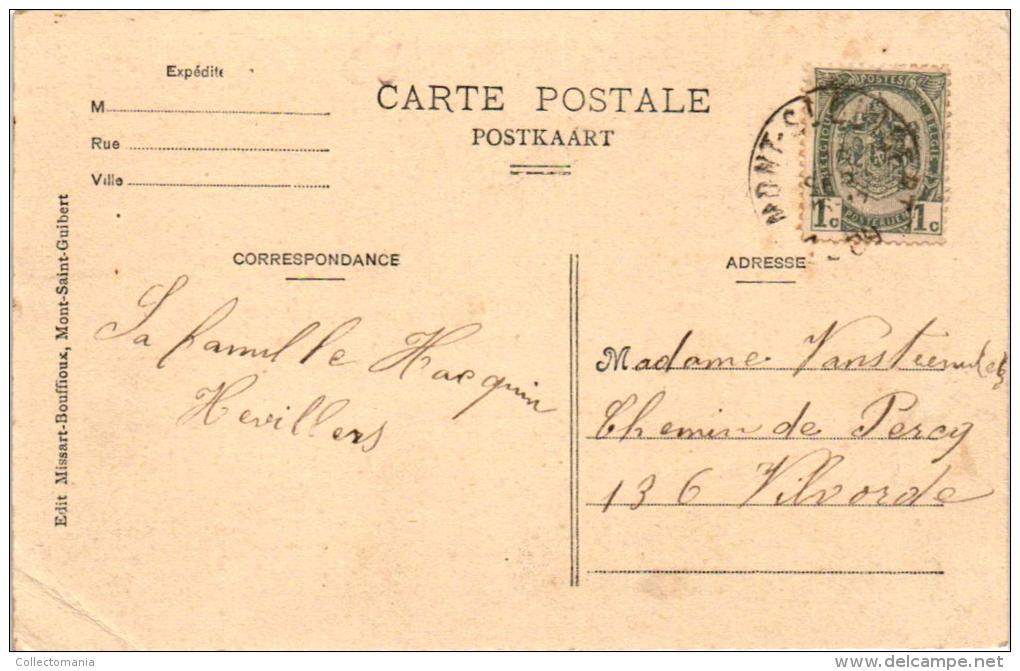 Expédite
M
Rue
Ville
CARTE POSTALE
POSTKAART
POSTES
BELGIQUE
BELGIË
POSTERIJEN
1c 1c
MONT-S
Edit Missart-Bouffioux, Mont-Saint-Guibert
CORRESPONDANCE
La famille Hacquin
Hevillers
ADRESSE
Madame
Chemin de Percq
136 Vilvorde
Collectomania
www.delcampe.net